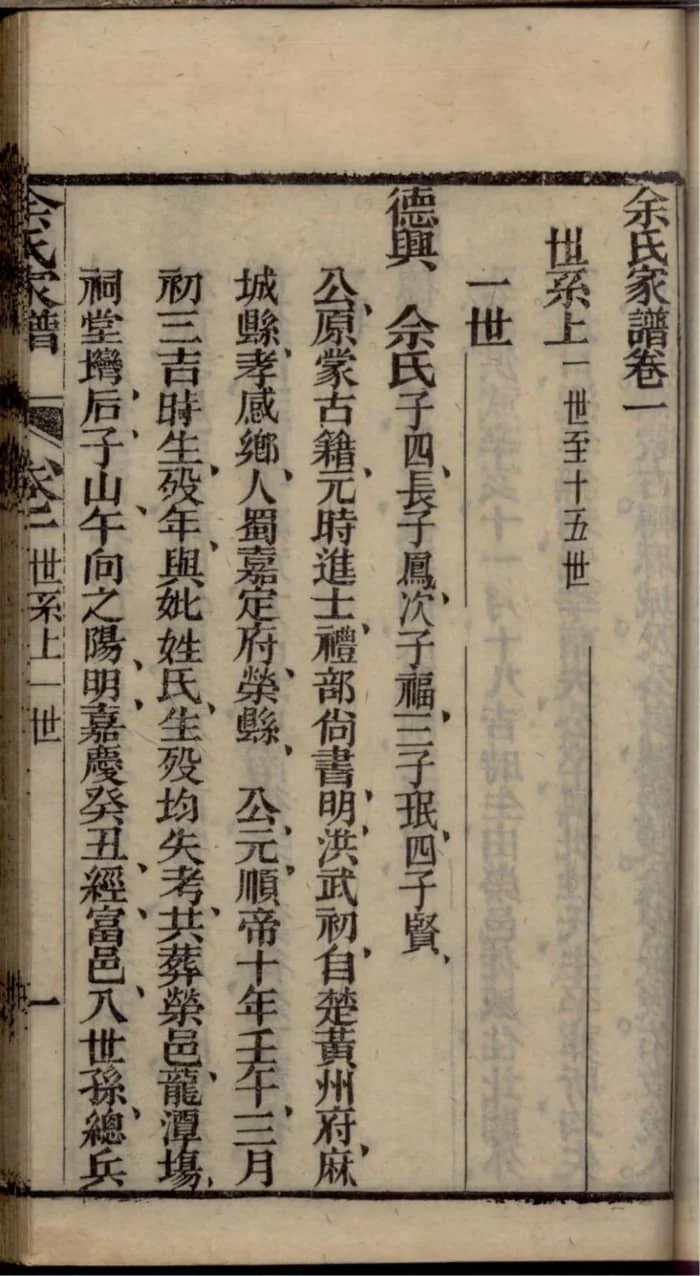 余氏家譜卷一
世系上一世至十五世
一世
德興、余氏子四、長子鳳、次子福、三子珉、四子賢、
公、原蒙古籍、元時進士、禮部尙書、明、洪武初、自楚黃州府、麻
城縣、孝感鄉、人蜀嘉定府、榮縣、公、元順帝十年壬午、三月
初三吉時生、歿年、與妣姓氏、生歿均失考、共葬榮邑、龍潭塲、
祠堂塆、后、子山、午向之陽、明、嘉慶癸丑、經富邑、八世孫、總兵
余氏家譜
卷一
世系上一世
一